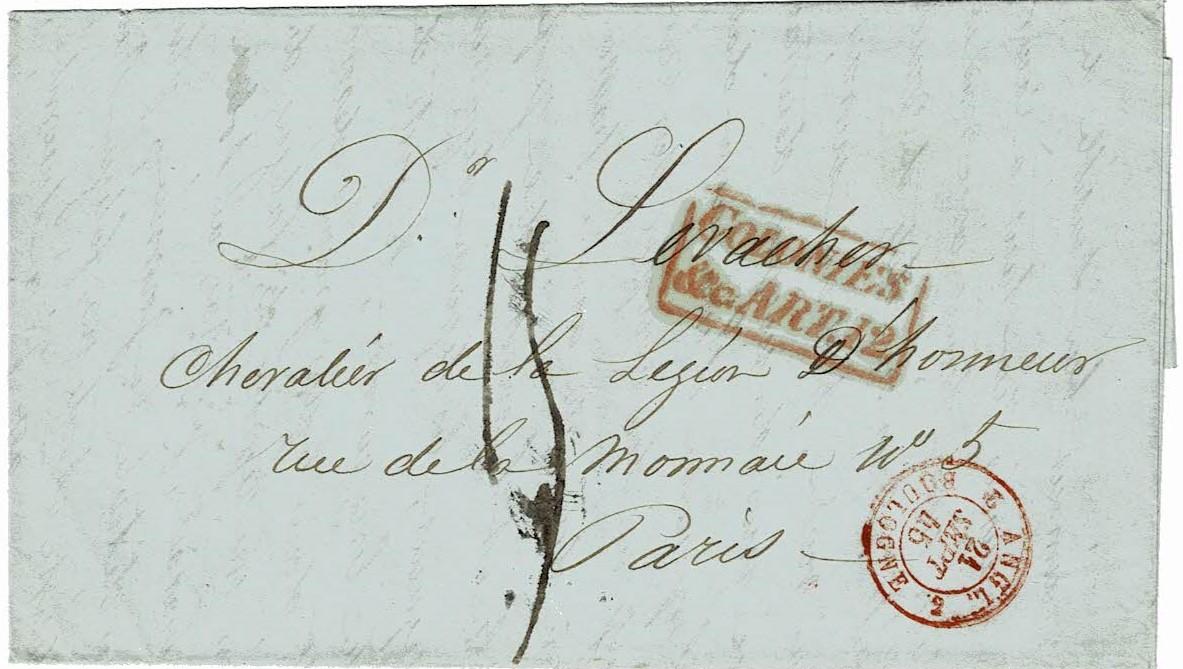 Dr. Leracher
Chevalier de la Legion D'honneur
rue de la Monnaie No 5
Paris
15
COLONIES
&c ART 12
2 ANGL. 2 BOULOGNE
21
SEPT
46